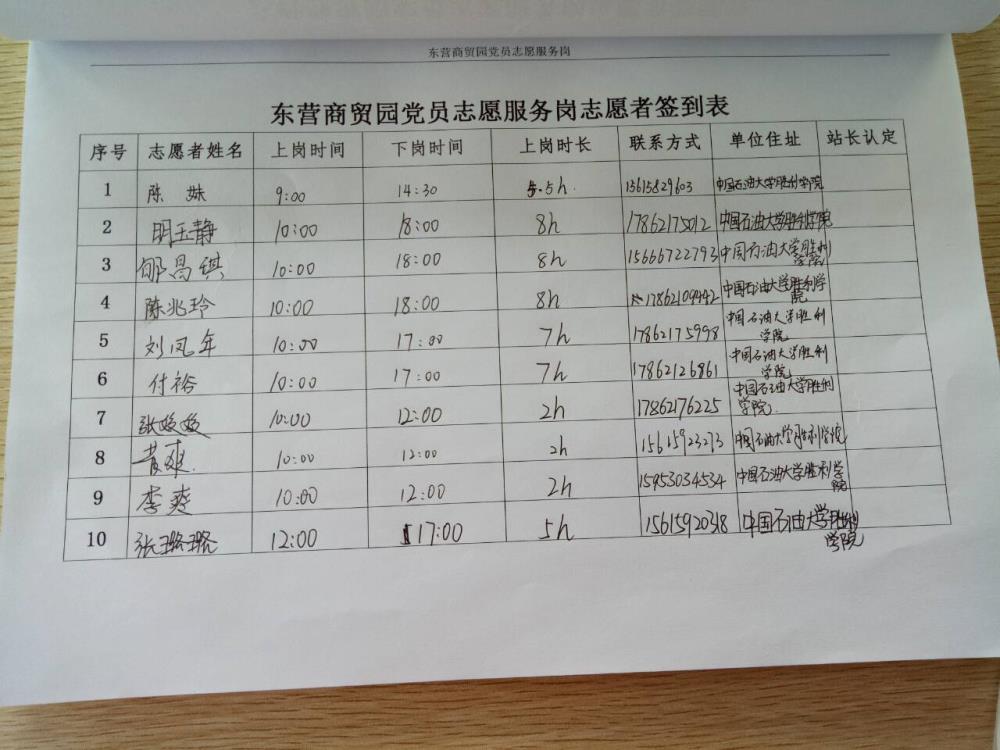 东营商贸园党员志愿服务岗
东营商贸园党员志愿服务岗志愿者签到表
序号 志愿者姓名 上岗时间 下岗时间 上岗时长 联系方式 单位住址 站长认定
1 陈 妹 9:00 14:30 5.5h 13615829603 中国石油大学胜利学院
2 明玉静 10:00 18:00 8h 17862175012 中国石油大学胜利学院
3 邹昌镇 10:00 18:00 8h 15666722793 中国石油大学胜利
学院
4 陈兆玲 10:00 18:00 8h 17862109442 中国石油大学胜利学
院
5 刘凤年 10:00 17:00 7h 17862175998 中国石油大学胜利
学院
6 付裕 10:00 17:00 7h 17862126861 中国石油大学胜利
学院
7 张姣姣 10:00 12:00 2h 17862176225 中国石油大学胜利
学院
8 黄爽 10:00 12:00 2h 15615923273 中国石油大学胜利学院
9 李爽 10:00 12:00 2h 15953034534 中国石油大学胜利学
院
10 张璐璐 12:00 17:00 5h 15615920318 中国石油大学胜利
学院